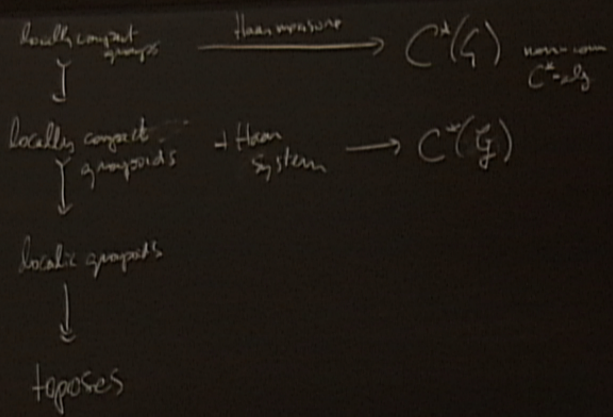 locally compact groups
Haar measure
C*(G)
non-com C*-alg
locally compact groupoids
+ Haar system
C*(G)
localic groupoids
toposes